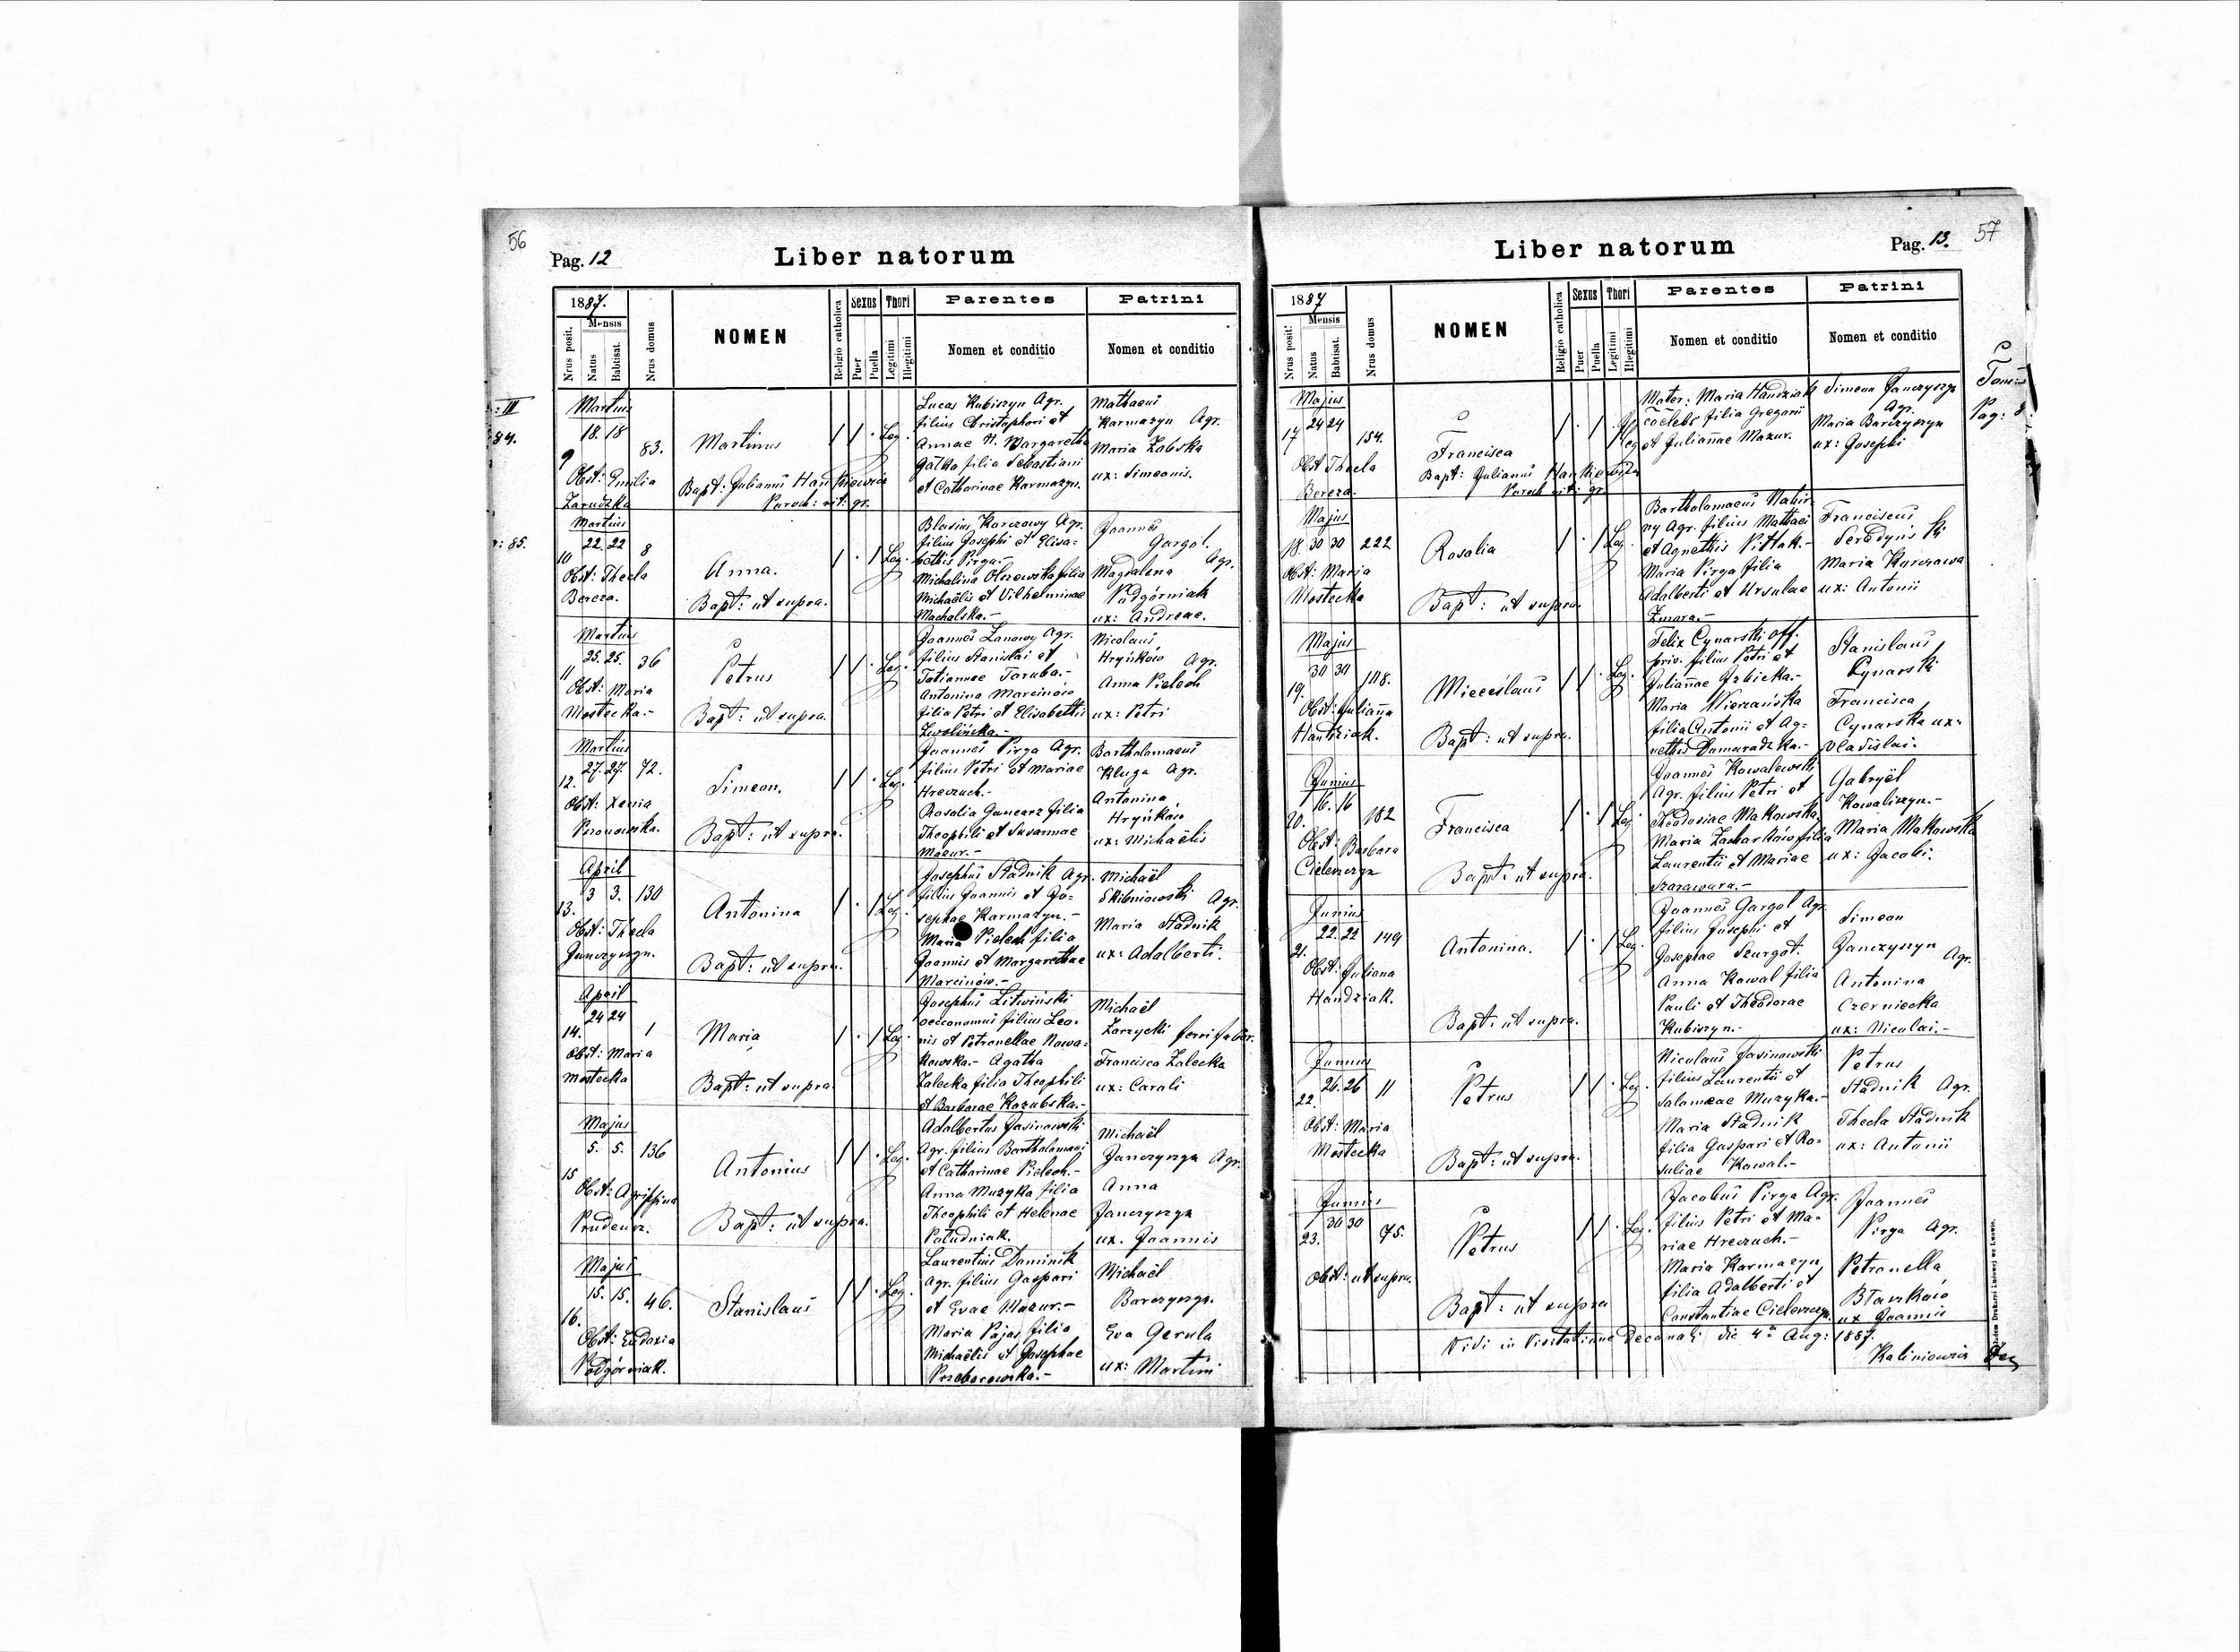 56
Pag. 12
Liber natorum
1887.
Mensis
Nrus posit.
Natus
Babtisat.
Nrus domus
NOMEN
Religio catholica
Sexus
Puer
Puella
Thori
Legitimi
Illegitimi
Parentes
Nomen et conditio
Patrini
Nomen et conditio
: III
84.
Martius
18. 18
9
83.
Obst: Emilia
Zarudzka
Martinus
Bapt: Julianus Hankiewicz
Paroch: rit: gr.
Leg.
Lucas Kubiszyn Agr.
filius Christophori et
Annae H. Margaretha
Gałka filia Sebastiani
et Catharinae Karmazyn.
Mathaeus
Karmazyn Agr.
Maria Zabska
ux: Simeonis.
r: 85.
Martius
22. 22
10
8
Obst: Thecla
Bereza.
Anna.
Bapt: ut supra.
Leg.
Blasius Karczowy Agr.
filius Josephi et Elisa=
bethis Pirga.-
Michalina Olszewska filia
Michaëlis et Vilhelminae
Machalska.-
Joannes
Gargol.
Agr.
Magdalena
Podgórniak
ux: Andreae.
Martius
25. 25.
11
36
Obst: Maria
Mostecka.-
Petrus
Bapt: ut supra.
Leg.
Joannes Lanowy Agr.
filius Stanislai et
Tatiannae Taruba.-
Antonina Marcinów
filia Petri et Elisabethis
Zwolińska.-
Nicolaus
Hryńków Agr.
Anna Pielech
ux: Petri
Martius
27. 27.
12.
72.
Obst: Xenia
Simeon.
Bapt: ut supra.
Leg.
Joannes Pirga Agr.
filius Petri et Mariae
Hreczuch.-
Rosalia Guncarz filia
Theophili et Susannae
Mazur.-
Bartholomaeus
Kluga Agr.
Antonina
Hryńków
ux: Michaëlis
April
3 3.
13.
130
Obst: Thecla
Janczyszyn.
Antonina
Bapt: ut supra.
Leg.
Josephus Stadnik Agr.
filius Joannis et Jo=
sephae Karmazyn.-
Maria Pielech filia
Joannis et Margarethae
Marcinów.-
Michaël
Skibniowski Agr.
Maria Stadnik
ux: Adalberti.
April
24 24
14.
1
Obst: Maria
Mostecka
Maria
Bapt: ut supra.
Leg.
Josephus Litwiński
oeconomus filius Leo=
nis et Petronellae Nowa=
kowska.- Agatha
Zalecka filia Theophili
et Barbarae Kozubska.-
Michaël
Zarzycki ferri faber.
Francisca Zalecka
ux: Caroli
Majus
5. 5.
15
136
Obst: Agrippina
Antonius
Bapt: ut supra.
Leg.
Adalbertus Jasinowski
Agr. filius Bartholomaei
et Catharinae Pielech.-
Anna Muzyka filia
Theophili et Helenae
Południak.
Michaël
Janczyszyn Agr.
Anna
Janczyszyn
ux. Joannis
Majus
15. 15.
16.
46.
Obst: Eudoxia
Podgórniak.
Stanislaus
Leg.
Laurentius Dominik
Agr. filius Gaspari
et Evae Mazur.-
Maria Pajas filia
Michaëlis et Josephae
Przeborowska.-
Michaël
Barczyszyn.
Eva Gerula
ux: Martini
Liber natorum
Pag. 13.
57
1887
Mensis
Nrus posit:
Natus
Babtisat.
Nrus domus
NOMEN
Religio catholica
Sexus
Puer
Puella
Thori
Legitimi
Illegitimi
Parentes
Nomen et conditio
Patrini
Nomen et conditio
Pag: 8.
Majus
24 24
17
154.
Obst Thecla
Bereza.
Francisca
Bapt: Julianus Hankiewicz
Paroch rit: gr.
Mater: Maria Handziak
caelebs filia Gregorii
et Juliannae Mazur.
Simeon Janczyszyn
Agr.
Maria Barczyszyn
ux: Josephi
Majus
18. 30 30
222
Obst: Maria
Mostecka
Rosalia
Bapt: ut supra.
Leg.
Bartholomaeus Nahir=
ny Agr. filius Mathaei
et Agnethis Pittak.-
Maria Pirga filia
Adalberti et Ursulae
Zmora.-
Franciscus
Seredyński
Maria Karczowa
ux: Antonii
Majus
30 30
19.
108.
Obst: Julianna
Handziak.
Mieceslaus
Bapt: ut supra.
Leg.
Felix Cynarski off.
priv. filius Petri et
Juliannae Izbicka.-
Maria Wierzańska
filia Antonii et Ag=
nethis Damaradzka.-
Stanislaus
Cynarski
Francisca
Cynarska ux=
Vladislai.
Junius
16. 16
20.
182
Obst: Barbara
Francisca
Bapt: ut supra.
Leg.
Joannes Kowalewski
Agr. filius Petri et
Theodosiae Makowska,
Maria Zacharków filia
Laurentii et Mariae
Szarawara.-
Gabryël
Kowaliszyn.-
Maria Makowska
ux: Jacobi.
Junius
22. 22
21.
149
Obst: Juliana
Handziak.
Antonina.
Bapt: ut supra.
Leg.
Joannes Gargol Agr.
filius Josephi et
Josephae Szurgot.
Anna Kowal filia
Pauli et Theodorae
Kubiszyn.-
Simeon
Janczyszyn
Agr.
Antonina
Czerniecka
ux: Nicolai.-
Junius
26. 26
22.
11
Obst: Maria
Mostecka
Petrus
Bapt: ut supra.
Leg.
Nicolaus Jasinowski
filius Laurentii et
Salomeae Muzyka.-
Maria Stadnik
filia Gaspari et Ro=
saliae Kowal.-
Petrus
Stadnik Agr.
Thecla Stadnik
ux: Antonii
Junius
30 30
23.
75.
Obst: ut supra.
Petrus
Bapt: ut supra
Leg.
Jacobus Pirga Agr.
filius Petri et Ma=
riae Hreczuch.-
Maria Karmazyn
filia Adalberti et
Constantiae
Joannes
Pirga Agr.
Petronella
ux Joannis
Vidi in Visitatione Decanali die 4a Aug: 1887.
Kaliniewicz
Nakładem Drukarni Ludowej we Lwowie.